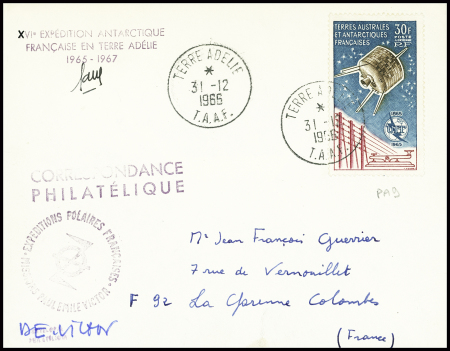 XVIe EXPÉDITION ANTARCTIQUE
FRANÇAISE EN TERRE ADÉLIE
1965 - 1967
TERRE ADÉLIE
*
31 -12
1966
T.A.A.F.
TERRE ADÉLIE
*
31 -12
1966
T.A.A.F.
30F
POSTE AÉRIENNE
RF
TERRES AUSTRALES
ET ANTARCTIQUES
FRANÇAISES
1865
UIT
1965
PA9
CORRESPONDANCE
PHILATÉLIQUE
EXPÉDITIONS POLAIRES FRANÇAISES
MISSIONS PAUL EMILE VICTOR
Mr Jean François Guerrier
7 rue de Vernouillet
F 92 La Garenne Colombes
(France)